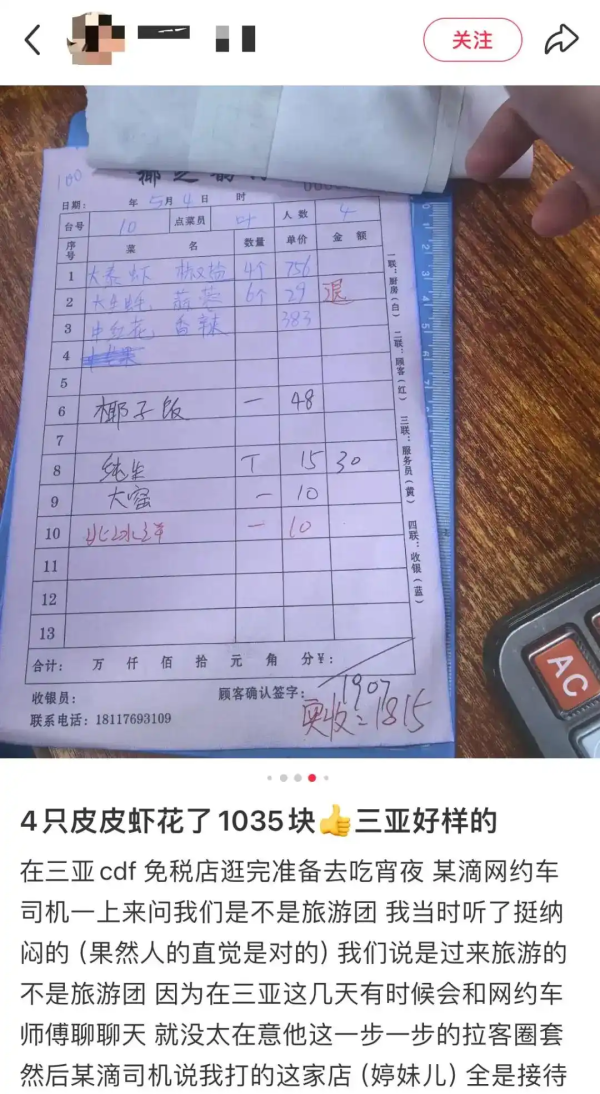 关注
100
日期： 年 5 月 4 日 时
台号 10 点菜员 叶 人数 4
序号 菜 名 数量 单价 金额
1 大泰虾 椒盐 4个 756
2 6个 29 退
3 中红花 香辣 383
4
5
6 椰子饭 一 48
7
8 纯生 T 15 30
9 大窑 一 10
10 一 10
11
12
13
合计： 万 仟 佰 拾 元 角 分¥：
1907
收银员： 顾客确认签字：
实收=1815
联系电话：18117693109
一联：厨房（白） 二联：顾客（红） 三联：服务员（黄） 四联：收银（蓝）
AC
4只皮皮虾花了1035块👍三亚好样的
在三亚cdf 免税店逛完准备去吃宵夜 某滴网约车
司机一上来问我们是不是旅游团 我当时听了挺纳
闷的（果然人的直觉是对的）我们说是过来旅游的
不是旅游团 因为在三亚这几天有时候会和网约车
师傅聊聊天 就没太在意他这一步一步的拉客圈套
然后某滴司机说我打的这家店（婷妹儿）全是接待